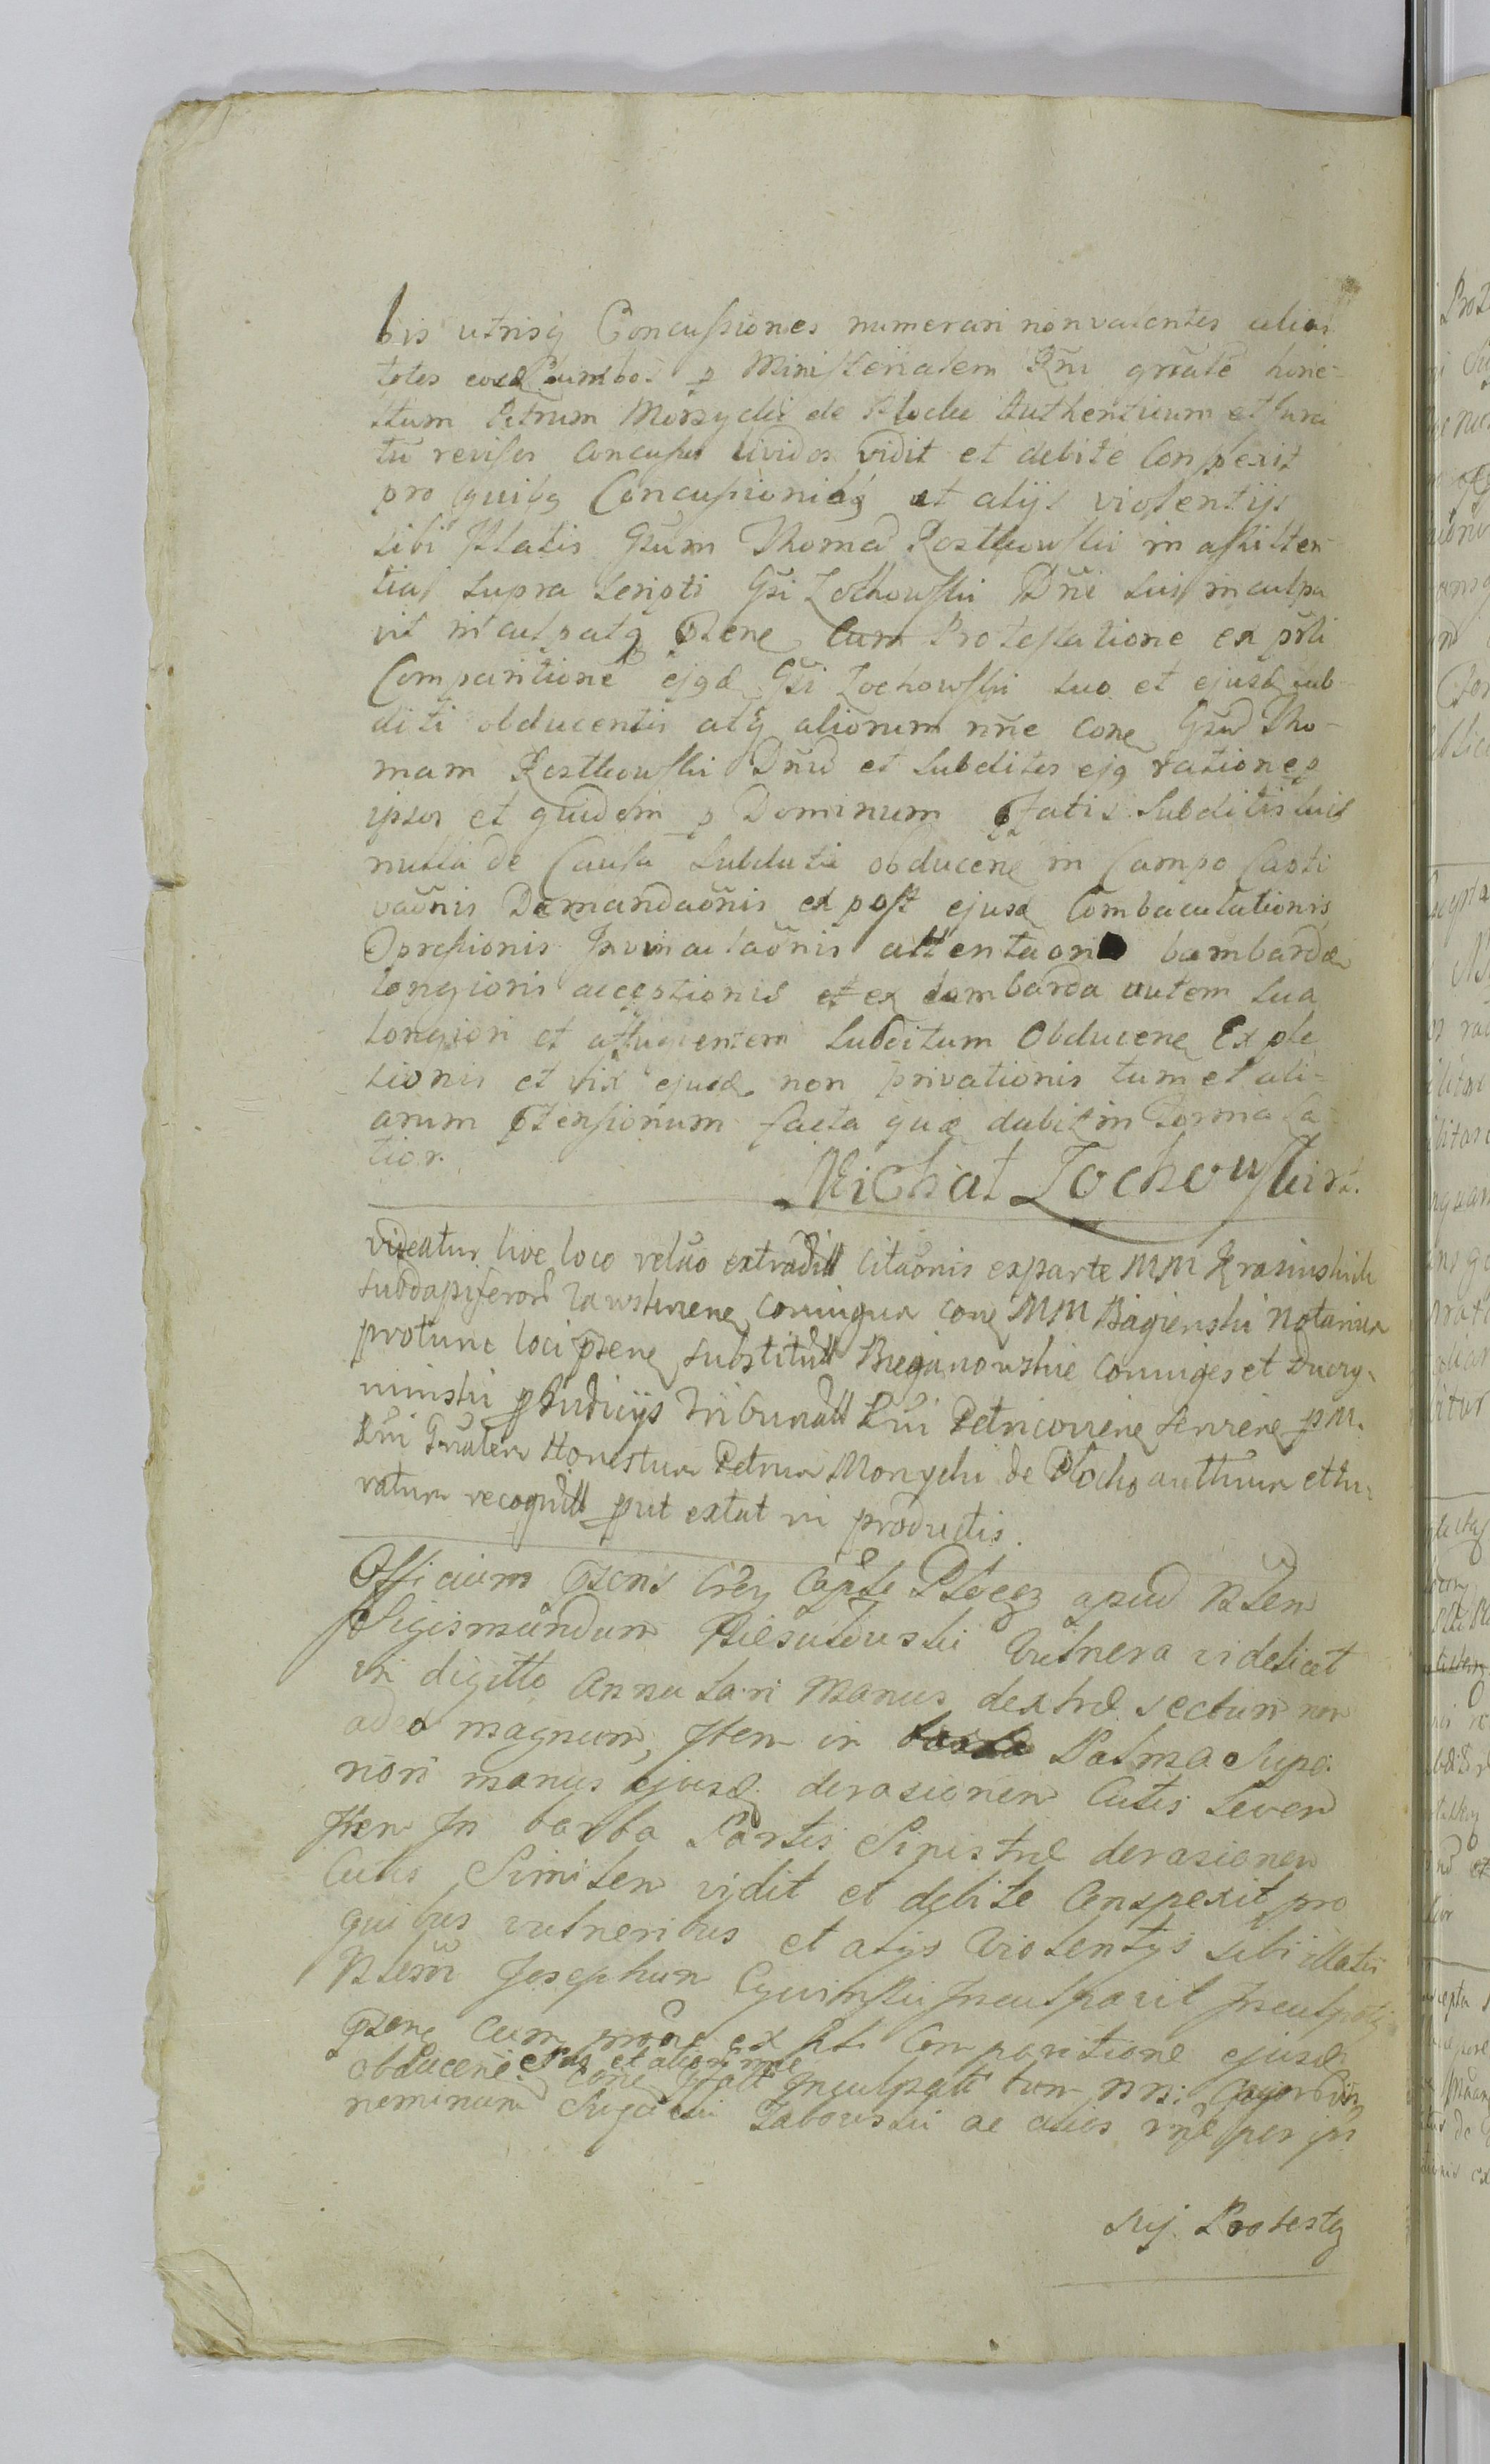 bis utrisq Concussiones numerari non valentes alias
totos eosd p Ministerialem Rni grale hone-
stum Petrum Morzycki de Plocke Authenticum et Jura
tu revisos concussos lividos vidit et debite Conspexit
pro quibq Concussionibq et alijs violentijs
sibi Illatis Gsum Thomã Kostkowski in assisten-
tias supra scripti Gsi Lochowski Dni sui inculpa
vit inculpatq Psene Cum Protestatione ex psti
Comparitione ejqd Gsi Lochowski suo et ejusd sub
diti obducentis atq aliorum nne cone Gsũ Tho-
mam Kostkowski Dnũ et subditos ejq ratione p
ipsos et quidem p Dominum Pfatis Subditis suis
nulla de Causa Subditi obducene in Campo Capti
vaõnis Demandaõnis ex post ejusd Combaculationis
Opressionis attentaon bombardæ
longioris acceptionis et ex bombarda autem sua
longiori et affugientem Subditum Obducene Explo
sionis et vix ejusd non privationis tum et ali-
arum Ptensionum facta quæ dabit in Termi La
tior.
Michał Łochowski
Videatur hic loco relaõ extradit Citaõnis ex parte MM Krasinskich
Subdapiferor Rawskiene coniugum cone MM Bagienski Notarium
protunc loci psene substitut Bieganowskie coniuges et Duczy-
minski p Judicijs Tribunall Rni Petricoviene Serviene p M.
Rni Gnalem Honestum Petrum Morzycki de Plocko autticum et Ju-
ratum recognit put extat in productis.
Officium Psens Crey Caple Plocen apud Nlem
Sigismundum Vulnera videlicet
in digitto Annulari Manus dextræ sectum non
adeo magnum, Item in Palma Supe
riori manus ejusd derasionem Cutis Levem
Item In barba Partis Sinistræ derasionem
Cutis Similem vidit et debite Conspexit pro
quibus vulneribus et alijs Violentijs sibi illatis
Nlem Josephum Cywinski Inculpavit Inculpat
Psene Cum ex psti Comparitione ejusd
obducene ejus et alior nne cone Pfatt Inculpatt tum
neminum Zaborski ac alios nne per ips
Mij Protestq